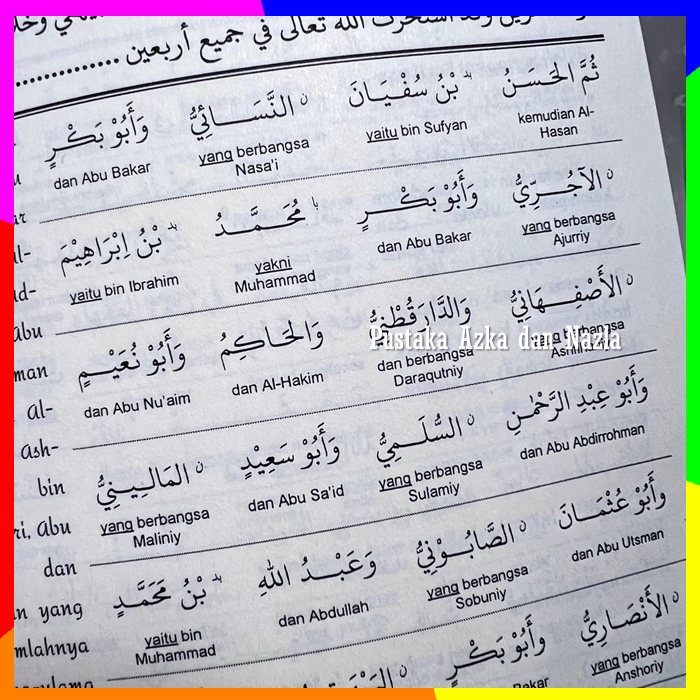 وقد استخرت الله تعالى في جميع أربعين ...............
ثُمَّ الْحَسَنُ بْنُ سُفْيَانَ النَّسَائِيُّ وَأَبُوْ بَكْرٍ
kemudian Al-Hasan yaitu bin Sufyan yang berbangsa Nasa'i dan Abu Bakar
الآجُرِّيُّ وَأَبُوْ بَكْرٍ مُحَمَّدُ بْنُ اِبْرَاهِيْمَ
yang berbangsa Ajurriy dan Abu Bakar yakni Muhammad yaitu bin Ibrahim
الأَصْفِهَانِيُّ وَالدَّارَقُطْنِيُّ وَالْحَاكِمُ وَأَبُوْ نُعَيْمٍ
yang berbangsa dan berbangsa Daraqutniy dan Al-Hakim dan Abu Nu'aim
Pustaka Azka dan Nazla
وَأَبُوْ عَبْدِ الرَّحْمٰنِ السُّلَمِيُّ وَأَبُوْ سَعِيْدٍ المَالِيْنِيُّ
dan Abu Abdirrohman yang berbangsa Sulamiy dan Abu Sa'id yang berbangsa Maliniy
وَأَبُوْ عُثْمَانَ الصَّابُوْنِيُّ وَعَبْدُ اللهِ بْنُ مُحَمَّدٍ
dan Abu Utsman yang berbangsa Sobuniy dan Abdullah yaitu bin Muhammad
الأَنْصَارِيُّ وَأَبُوْ بَكْرٍ
yang berbangsa Anshoriy Bakar
man
al-
ash-
bin
ri, Abu
dan
yang
mlahnya